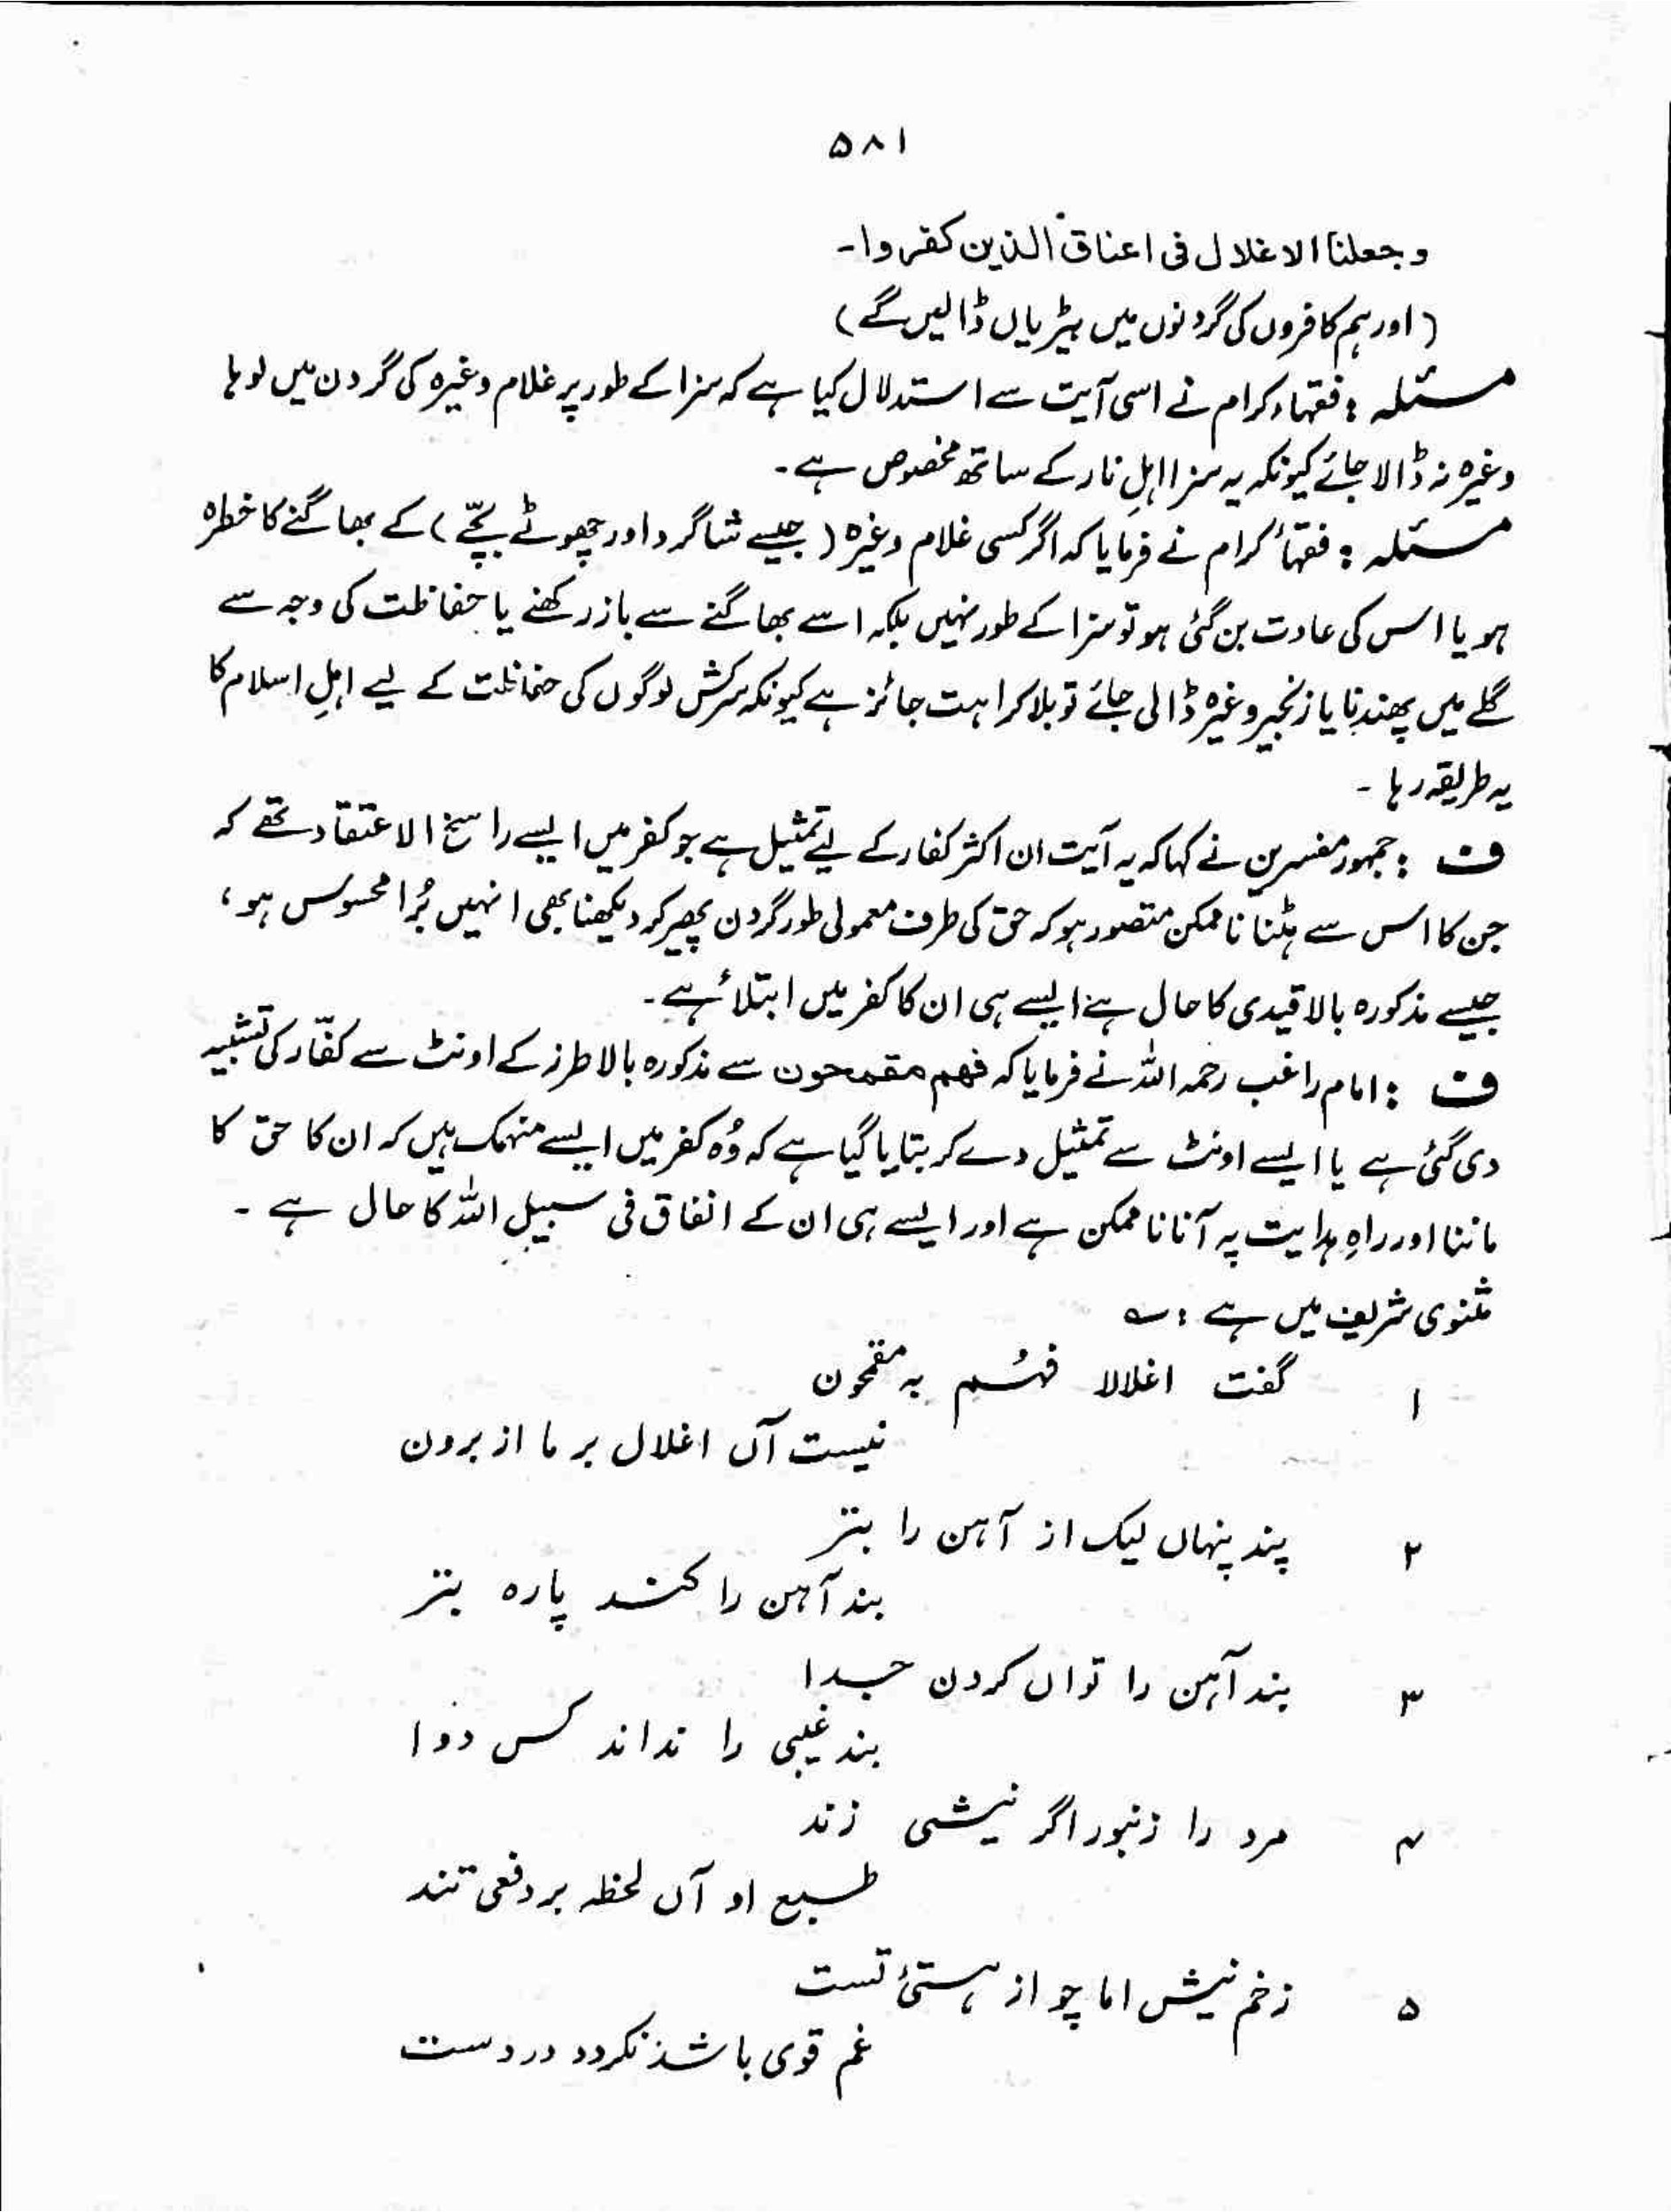 ۵۸۱
وجعلنا الاغلال فی اعناق الذین کفروا۔
(اور ہم کافروں کی گردنوں میں بیڑیاں ڈالیں گے)
مسئلہ : فقہاء کرام نے اسی آیت سے استدلال کیا ہے کہ سزا کے طور پر غلام وغیرہ کی گردن میں لوہا
وغیرہ نہ ڈالا جائے کیونکہ یہ سزا اہلِ نار کے ساتھ مخصوص ہے۔
مسئلہ : فقہأ کرام نے فرمایا کہ اگر کسی غلام وغیرہ (جیسے شاگرد اور چھوٹے بچّے) کے بھاگنے کا خطرہ
ہو یا اس کی عادت بن گئی ہو تو سزا کے طور نہیں بلکہ اسے بھاگنے سے باز رکھنے یا حفاظت کی وجہ سے
گلے میں پھندنا یا زنجیر وغیرہ ڈالی جائے تو بلا کراہت جائز ہے کیونکہ سرکش لوگوں کی حفاظت کے لیے اہلِ اسلام کا
یہ طریقہ رہا ۔
ف : جمہور مفسرین نے کہا کہ یہ آیت ان اکثر کفار کے لیے تمثیل ہے جو کفر میں ایسے راسخ الاعتقاد تھے کہ
جن کا اس سے ہٹنا ناممکن متصور ہو کہ حق کی طرف معمولی طور گردن پھیر کر دیکھنا بھی انہیں بُرا محسوس ہو،
جیسے مذکورہ بالا قیدی کا حال ہے ایسے ہی ان کا کفر میں ابتلأ ہے۔
ف : امام راغب رحمہ اللہ نے فرمایا کہ فھم مقمحون سے مذکورہ بالا طرز کے اونٹ سے کفّار کی تشبیہ
دی گئی ہے یا ایسے اونٹ سے تمثیل دے کر بتایا گیا ہے کہ وُہ کفر میں ایسے منہمک ہیں کہ ان کا حق کا
ماننا اور راہِ ہدایت پہ آنا ناممکن ہے اور ایسے ہی ان کے انفاق فی سبیل اللہ کا حال ہے ۔
مثنوی شریف میں ہے : ؎
۱ گفت اغلالا فہُم بہ مقمحون
نیست آں اغلال بر ما از برون
۲ پند پنہاں لیک از آہن را بتر
بند آہن را کند پارہ بتر
۳ بند آہن را تواں کردن جدا
بند غیبی را نداند کس دوا
۴ مرد را زنبور اگر نیشی زند
طبع او آں لحظہ بر دفعی تند
۵ زخم نیش اما چو از ہستئ تست
غم قوی باشد نگردد درد سست